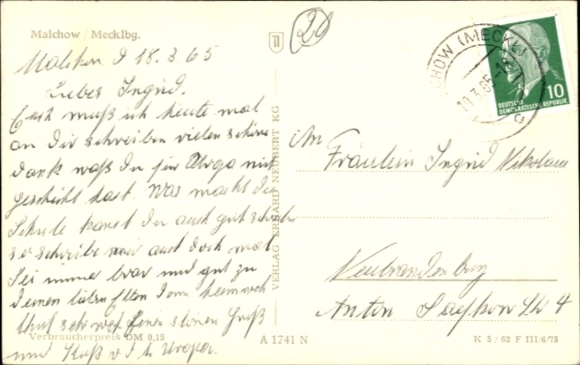 Malchow / Mecklbg.
20
Malchow d 18.3.65
Liebes Ingrid.
muß ich heute mal
an Dir schreiben vielen schöne
dank was Du für Uroga mit
geschickt hast. Was macht die
Schule kanst Du auch gut
so schreibe mir auch doch mal
Sei immer brav und gut zu
Deinen lieben Eltern
Gruß
und Kuß v d
Verbraucherpreis DM 0,15
VERLAG ERHARD NEUBERT KG
MALCHOW (MECKL)
10
DEUTSCHE
DEMOKRATISCHE REPUBLIK
An
Fräulein Ingrid Nikolaus
Neubrandenburg
Anton Saefkow Str 4
A 1741 N
K 5/62 F III/6/75